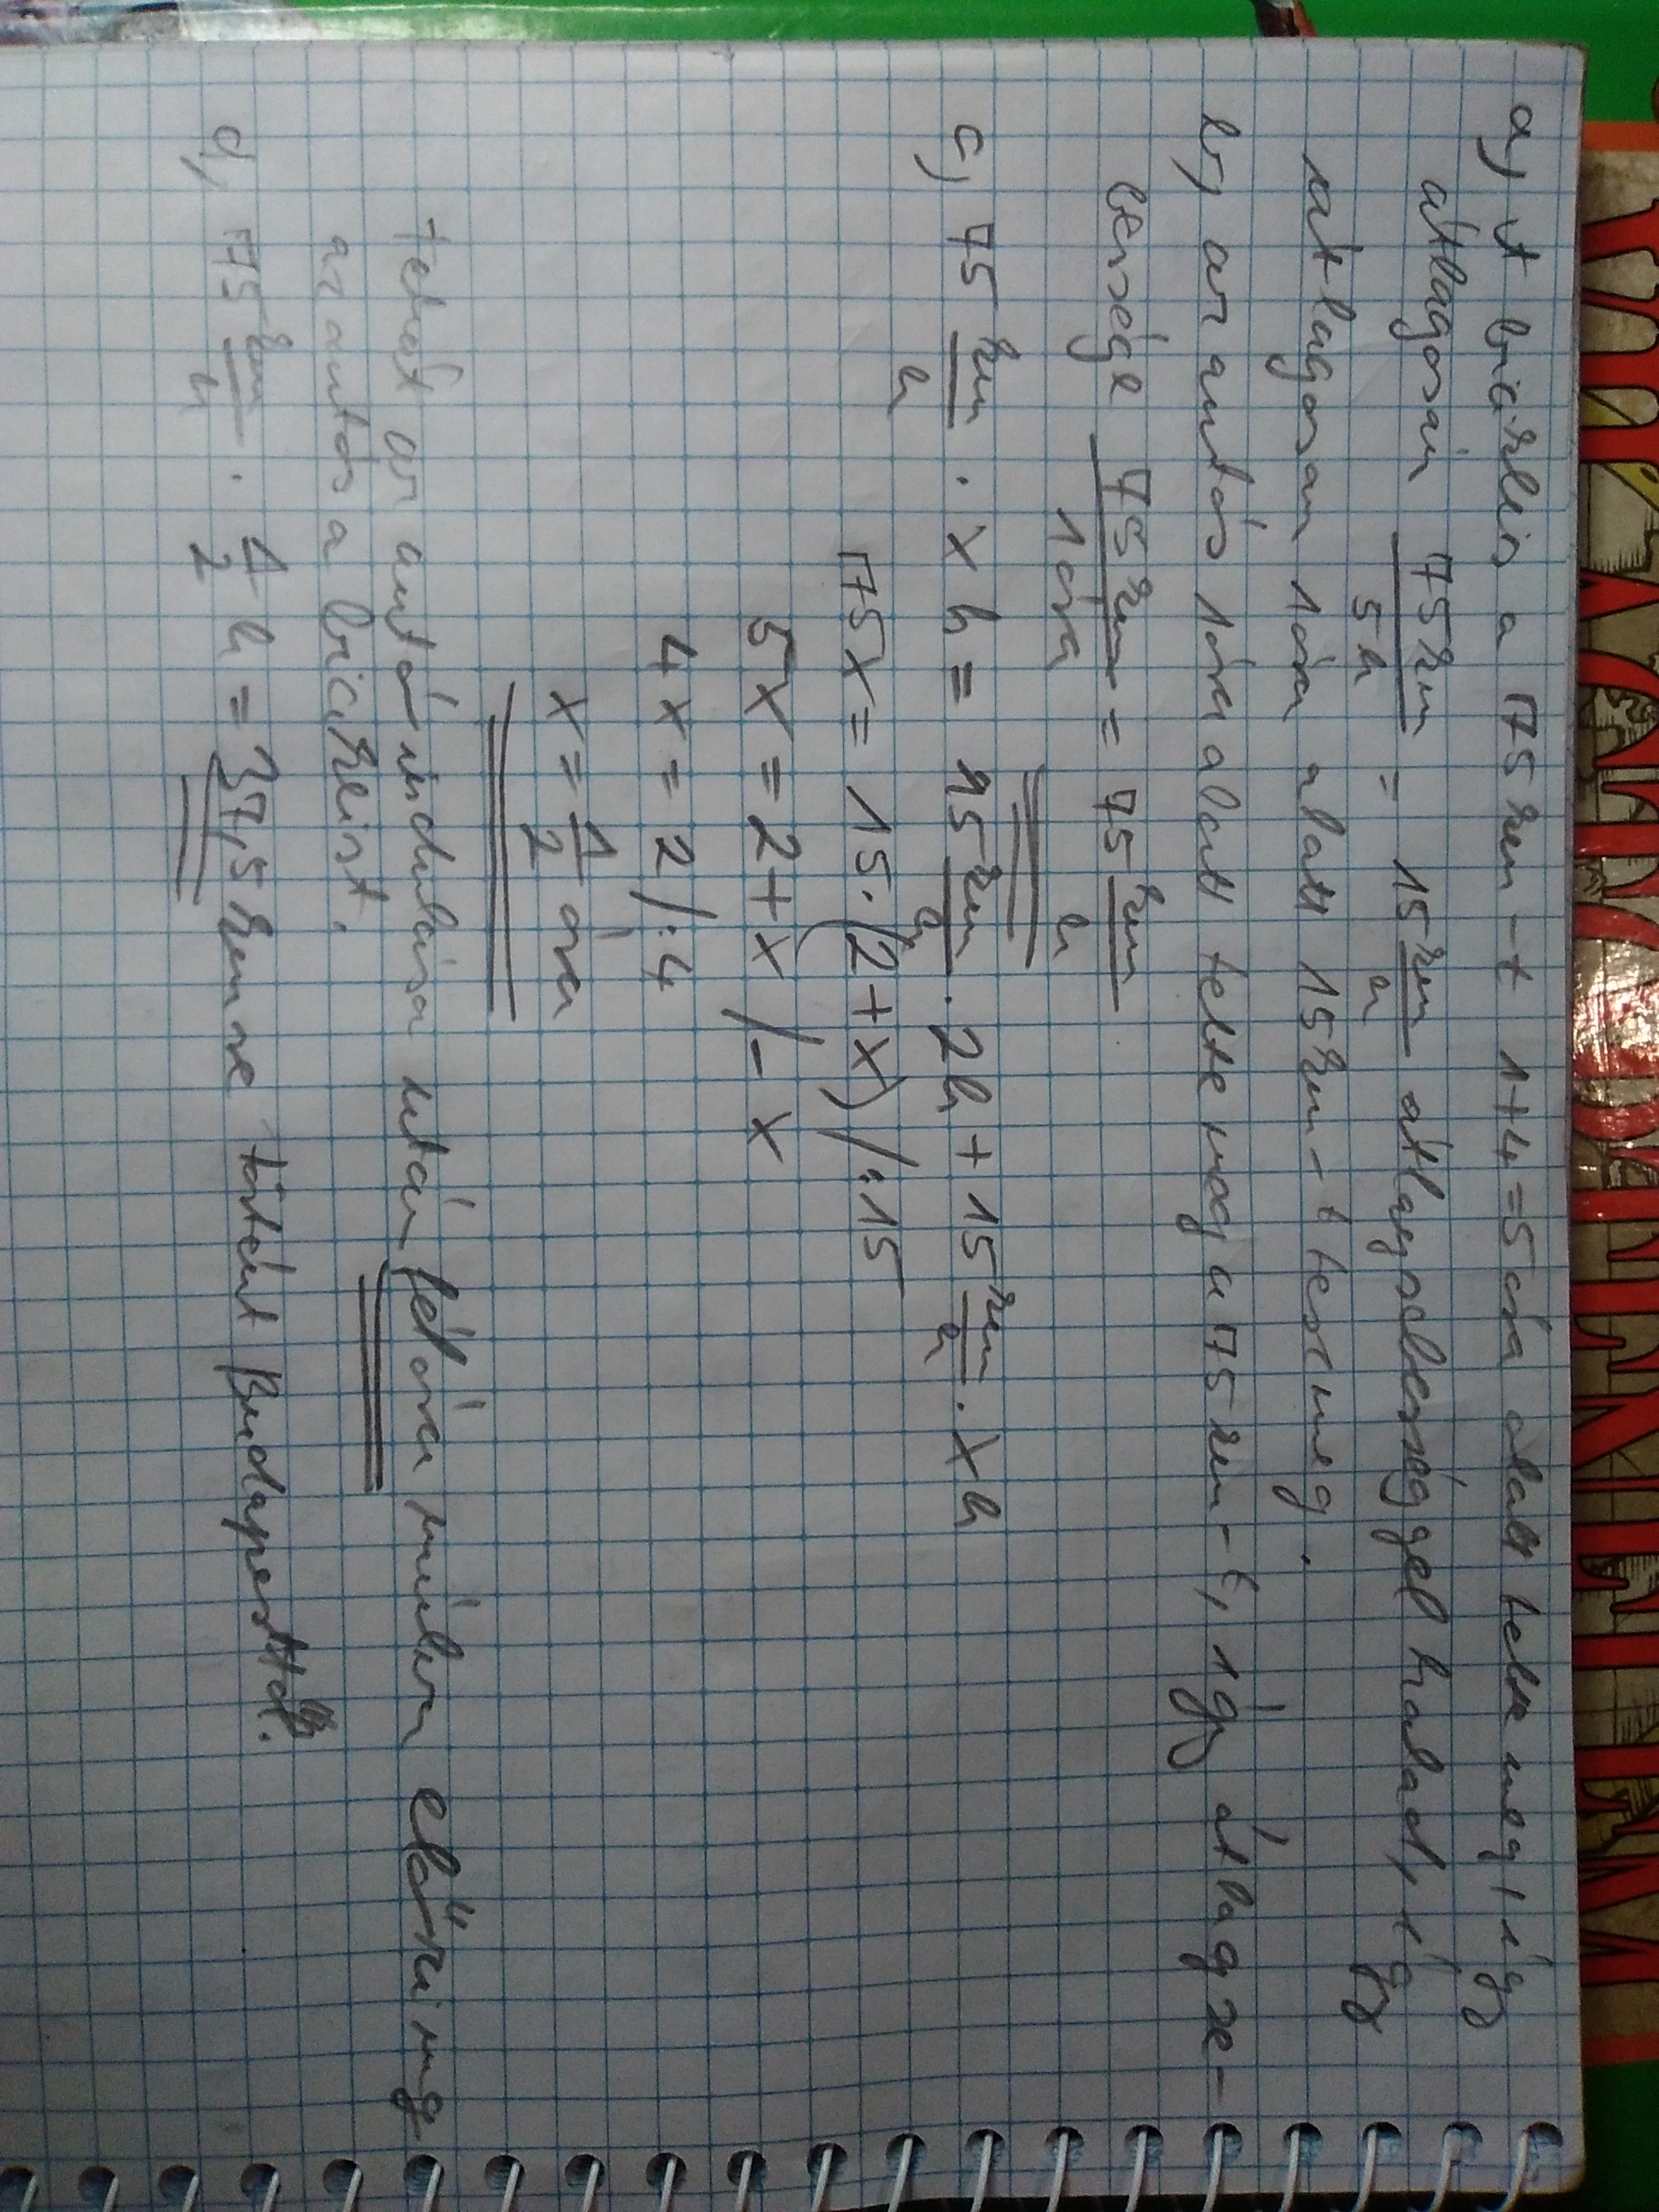 a) A biciklis a 75 km-t 1+4=5 óra alatt tette meg, így
átlagosan 75 km / 5 h = 15 km/h átlagsebességgel haladt, így
átlagosan 1 óra alatt 15 km-t tesz meg.
b) az autós 1 óra alatt tette meg a 75 km-t, így átlagse-
bessége 75 km / 1 óra = 75 km/h
c) 75 km/h · x h = 15 km/h · 2h + 15 km/h · x h
75x = 15·(2+x) /:15
5x = 2+x /-x
4x = 2 /:4
x = 1/2 óra
Tehát az autó indulása után fél óra múlva előzi meg
az autós a biciklist.
d) 75 km/h · 1/2 h = 37,5 km-re történt Budapesttől.